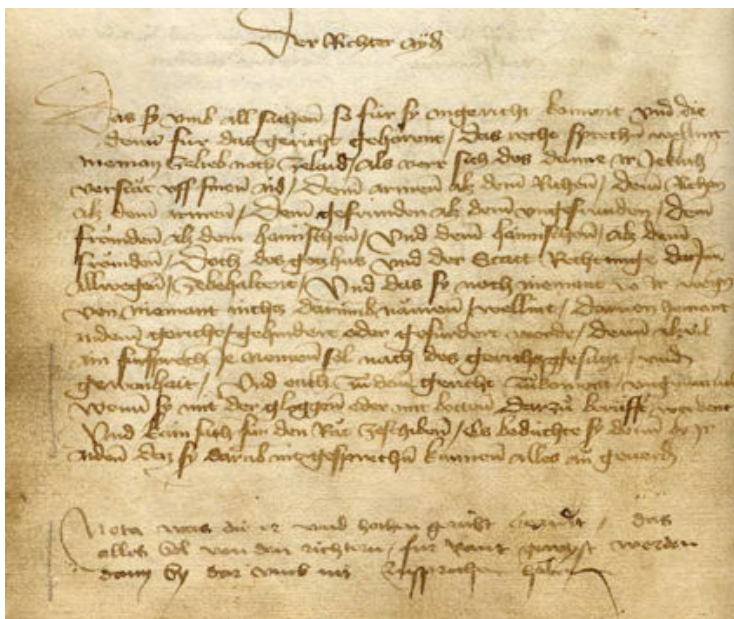 Der Richter ayd
Das sy umb all sachen so für sy an gericht koment und die
denn für das gericht gehörent / Das reche sprechen wellint
nieman zelieb noch zelaid / als verr sich des danne ir jeklich
verstat uff sinen aid / Dem armen alz dem Richen / dem Richen
alz dem armen / Dem gefrunden alz dem ungefrunden / Dem
frömden alz dem haimschen / Und dem haimschen / alz dem
frömden / Doch des gotzhus und der Statt Rechtunge darinn
allwegen / zebehaltent / Und das sy noch niemant von ir wegen
von niemant nichtz darumb nämen / wellint / Davon jemant
an dem gericht / gehindert oder gefürdert werde / denn alz vil
ain fürsprech ze nemen sol nach des gerichtz gesatzt / und
gewonhait / Und ouch zu dem gericht zekoment
Wenn sy mit der gloggen oder mit botten darzu berüfft werdent
Und kain sach für den Rat zeschiben / Es beduchte sy denn by ir
aiden daz sy darumb nit gesprechen kunnen alles an geverd
Nota was die er und hochen gericht / das
alles sol von den richtern / für Raut gewyst werden
dann sy dar umb nit zusprechen haben